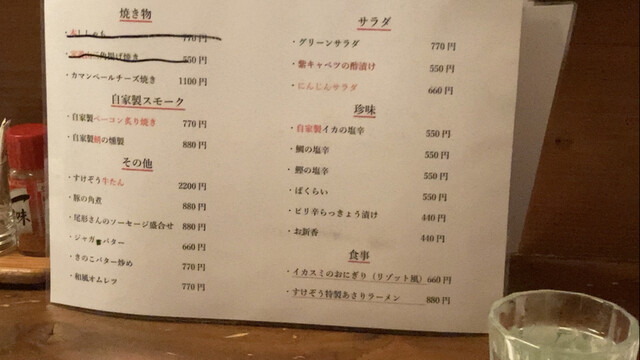 焼き物
・本ししゃも 770円
角揚げ焼き 550円
・カマンベールチーズ焼き 1100円
自家製スモーク
・自家製ベーコン炙り焼き 770円
・自家製鯖の燻製 880円
その他
・すけぞう牛たん 2200円
・豚の角煮 880円
・尾形さんのソーセージ盛合せ 880円
・ジャガバター 660円
・きのこバター炒め 770円
・和風オムレツ 770円
サラダ
・グリーンサラダ 770円
・紫キャベツの酢漬け 550円
・にんじんサラダ 660円
珍味
・自家製イカの塩辛 550円
・鯛の塩辛 550円
・鰹の塩辛 550円
・ばくらい 550円
・ピリ辛らっきょう漬け 440円
・お新香 440円
食事
・イカスミのおにぎり（リゾット風）660円
・すけぞう特製あさりラーメン 880円
一味